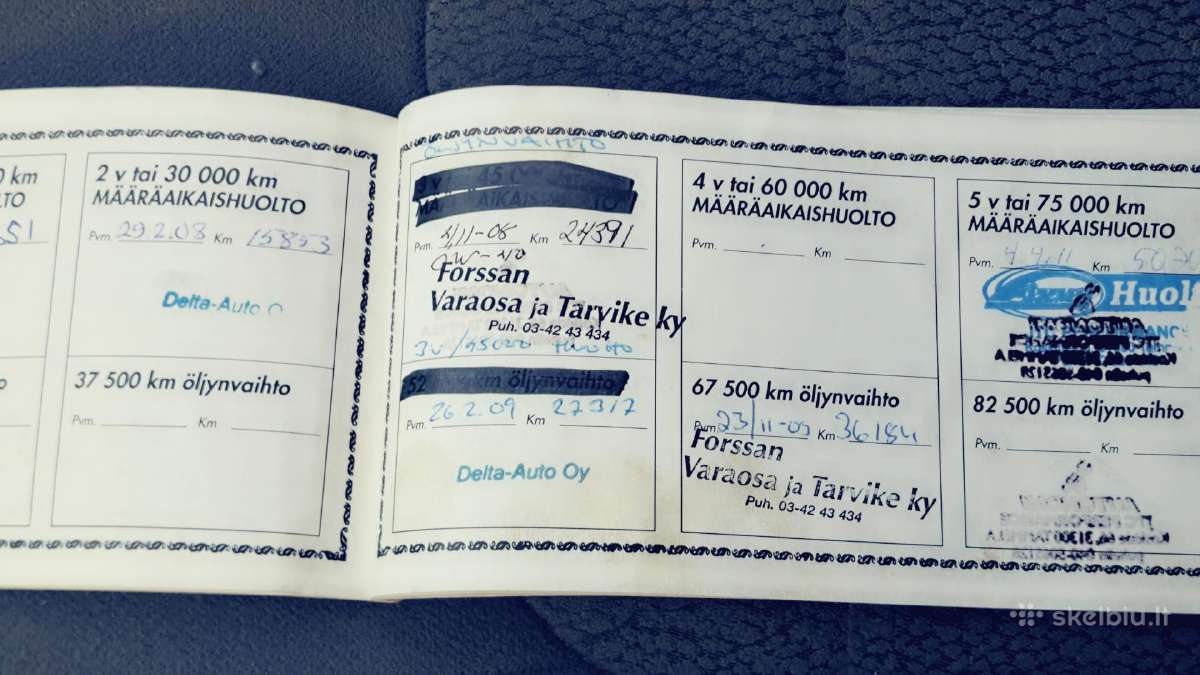 0 km
LTO
51
2 v tai 30 000 km
MÄÄRÄAIKAISHUOLTO
Pvm. 29.2.08 Km 15853
Delta-Auto O
37 500 km öljynvaihto
Pvm. Km
ÖLJYNVAIHTO
Pvm. 4/11-08 Km 24391
Forssan
Varaosa ja Tarvike ky
Puh. 03-42 43 434
3V/45000 HUOLTO
52 km öljynvaihto
Pvm. 26.2.09 Km 27317
Delta-Auto Oy
4 v tai 60 000 km
MÄÄRÄAIKAISHUOLTO
Pvm. Km
67 500 km öljynvaihto
Pvm. 23/11-09 Km 36184
Forssan
Varaosa ja Tarvike ky
Puh. 03-42 43 434
5 v tai 75 000 km
MÄÄRÄAIKAISHUOLTO
Pvm. Km
Huol
82 500 km öljynvaihto
Pvm. Km
skelbiu.lt